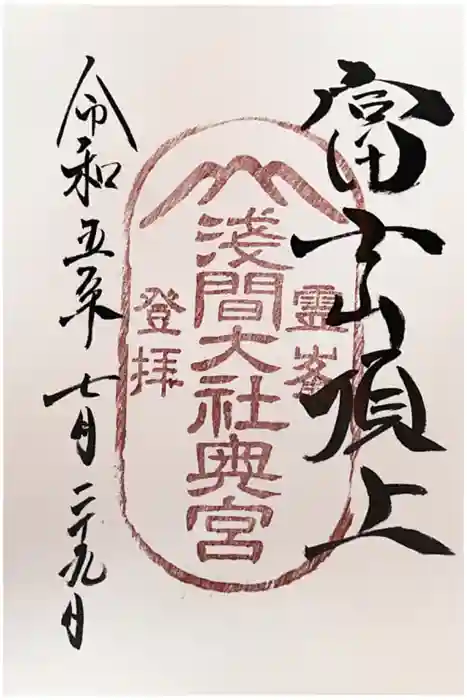 富士山頂上
霊峯
浅間大社奥宮
登拝
令和五年七月二十九日